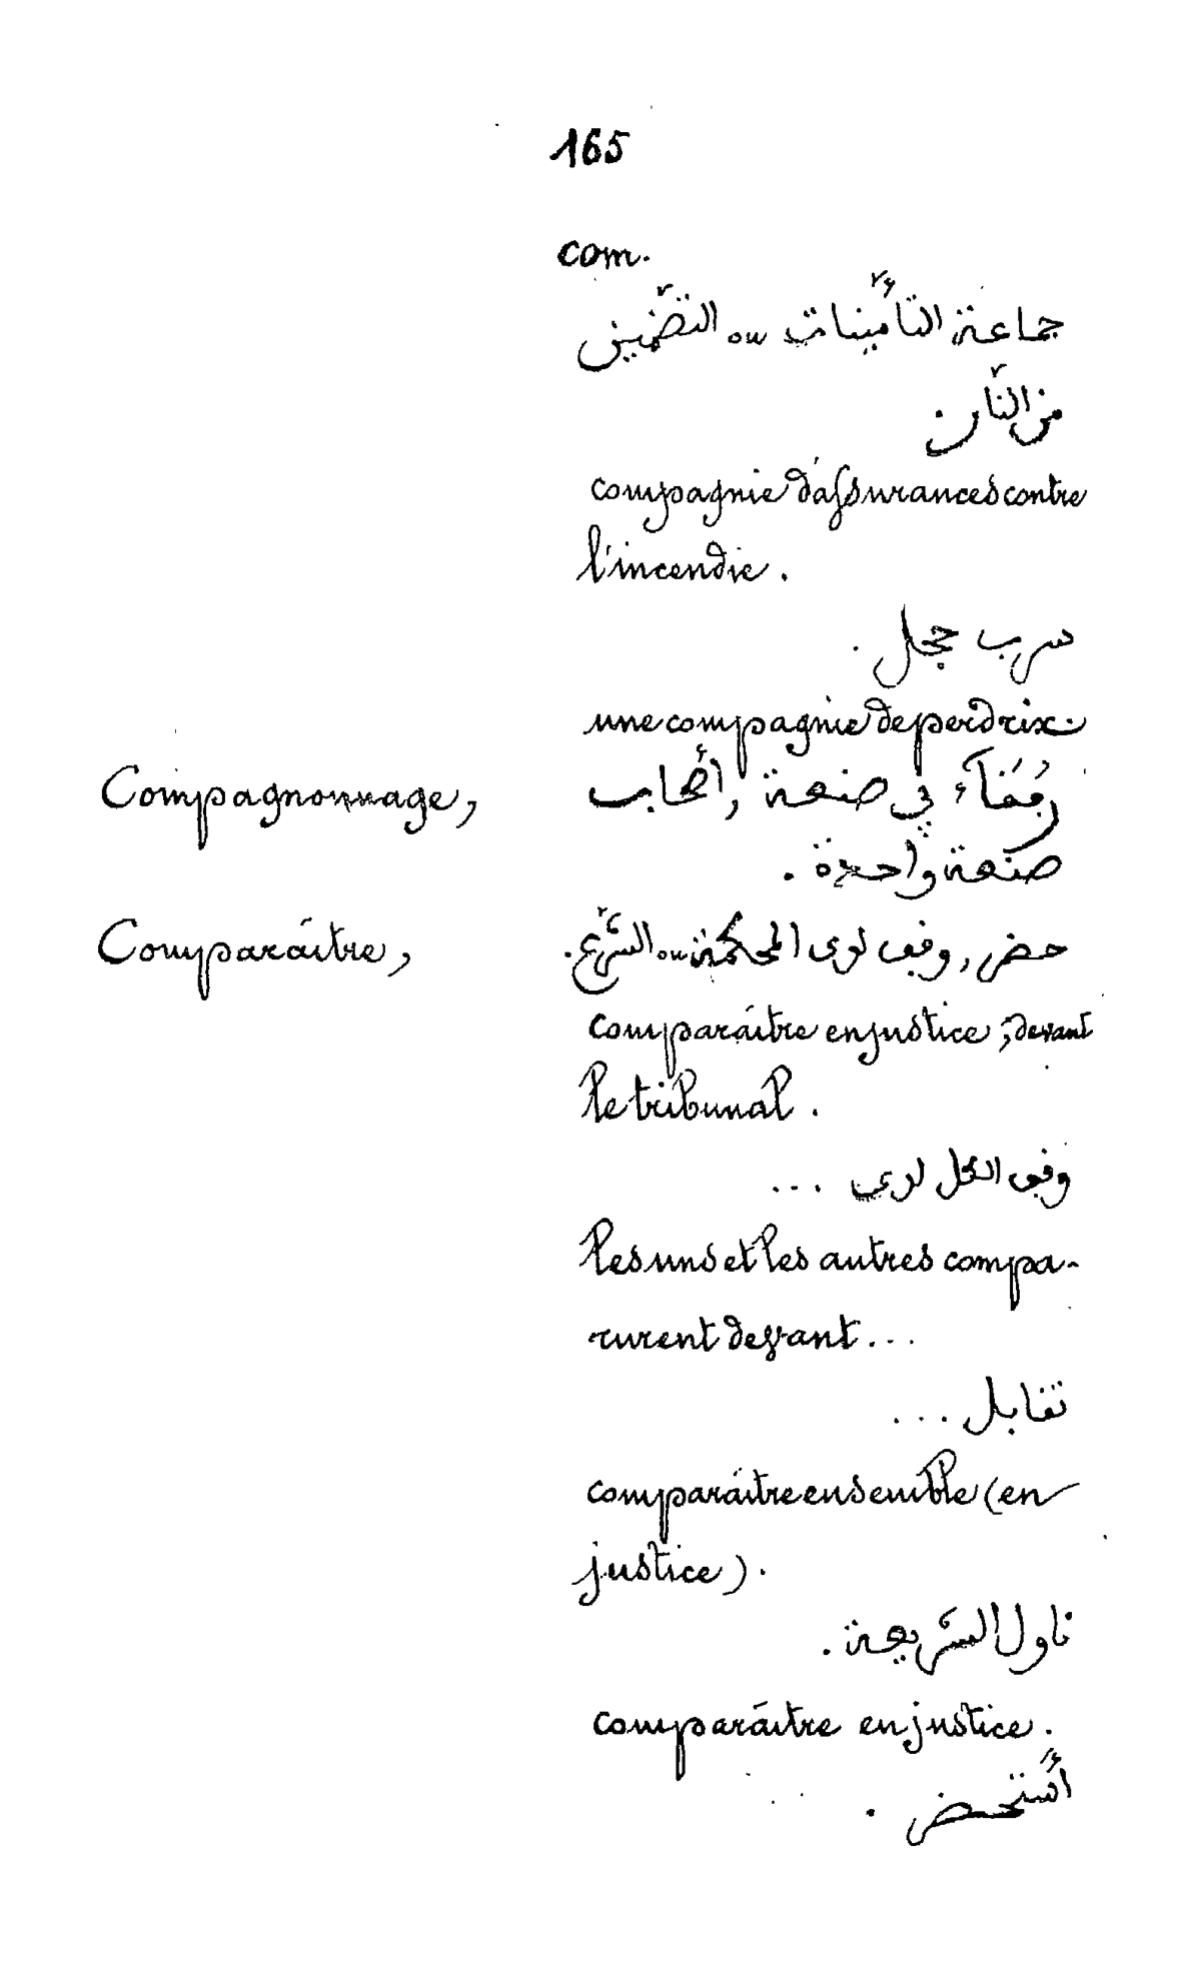 165
com.
جماعة التأمينات ou التضمين
من النّار.
compagnie d'assurances contre
l'incendie.
سرب حجل.
une compagnie de perdrix.
Compagnonnage, رُفَقَآء في صنعة, أصحاب
صنعة واحدة.
Comparaître, حضر, وقف لدى المحكمة ou الشّرع.
comparaître en justice; devant
le tribunal.
وقف الكل لدى ...
les uns et les autres compa-
rurent devant...
تقابل ...
comparaître ensemble (en
justice).
ناول الشّريعة.
comparaître en justice.
أستحضر.